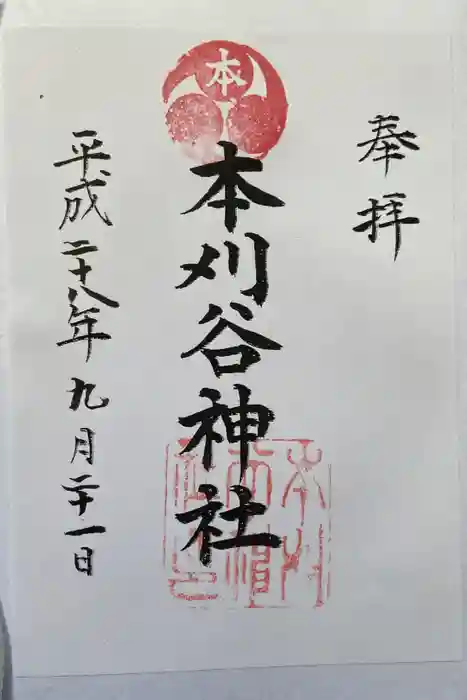 奉拝
本
本刈谷神社
平成二十八年九月二十一日